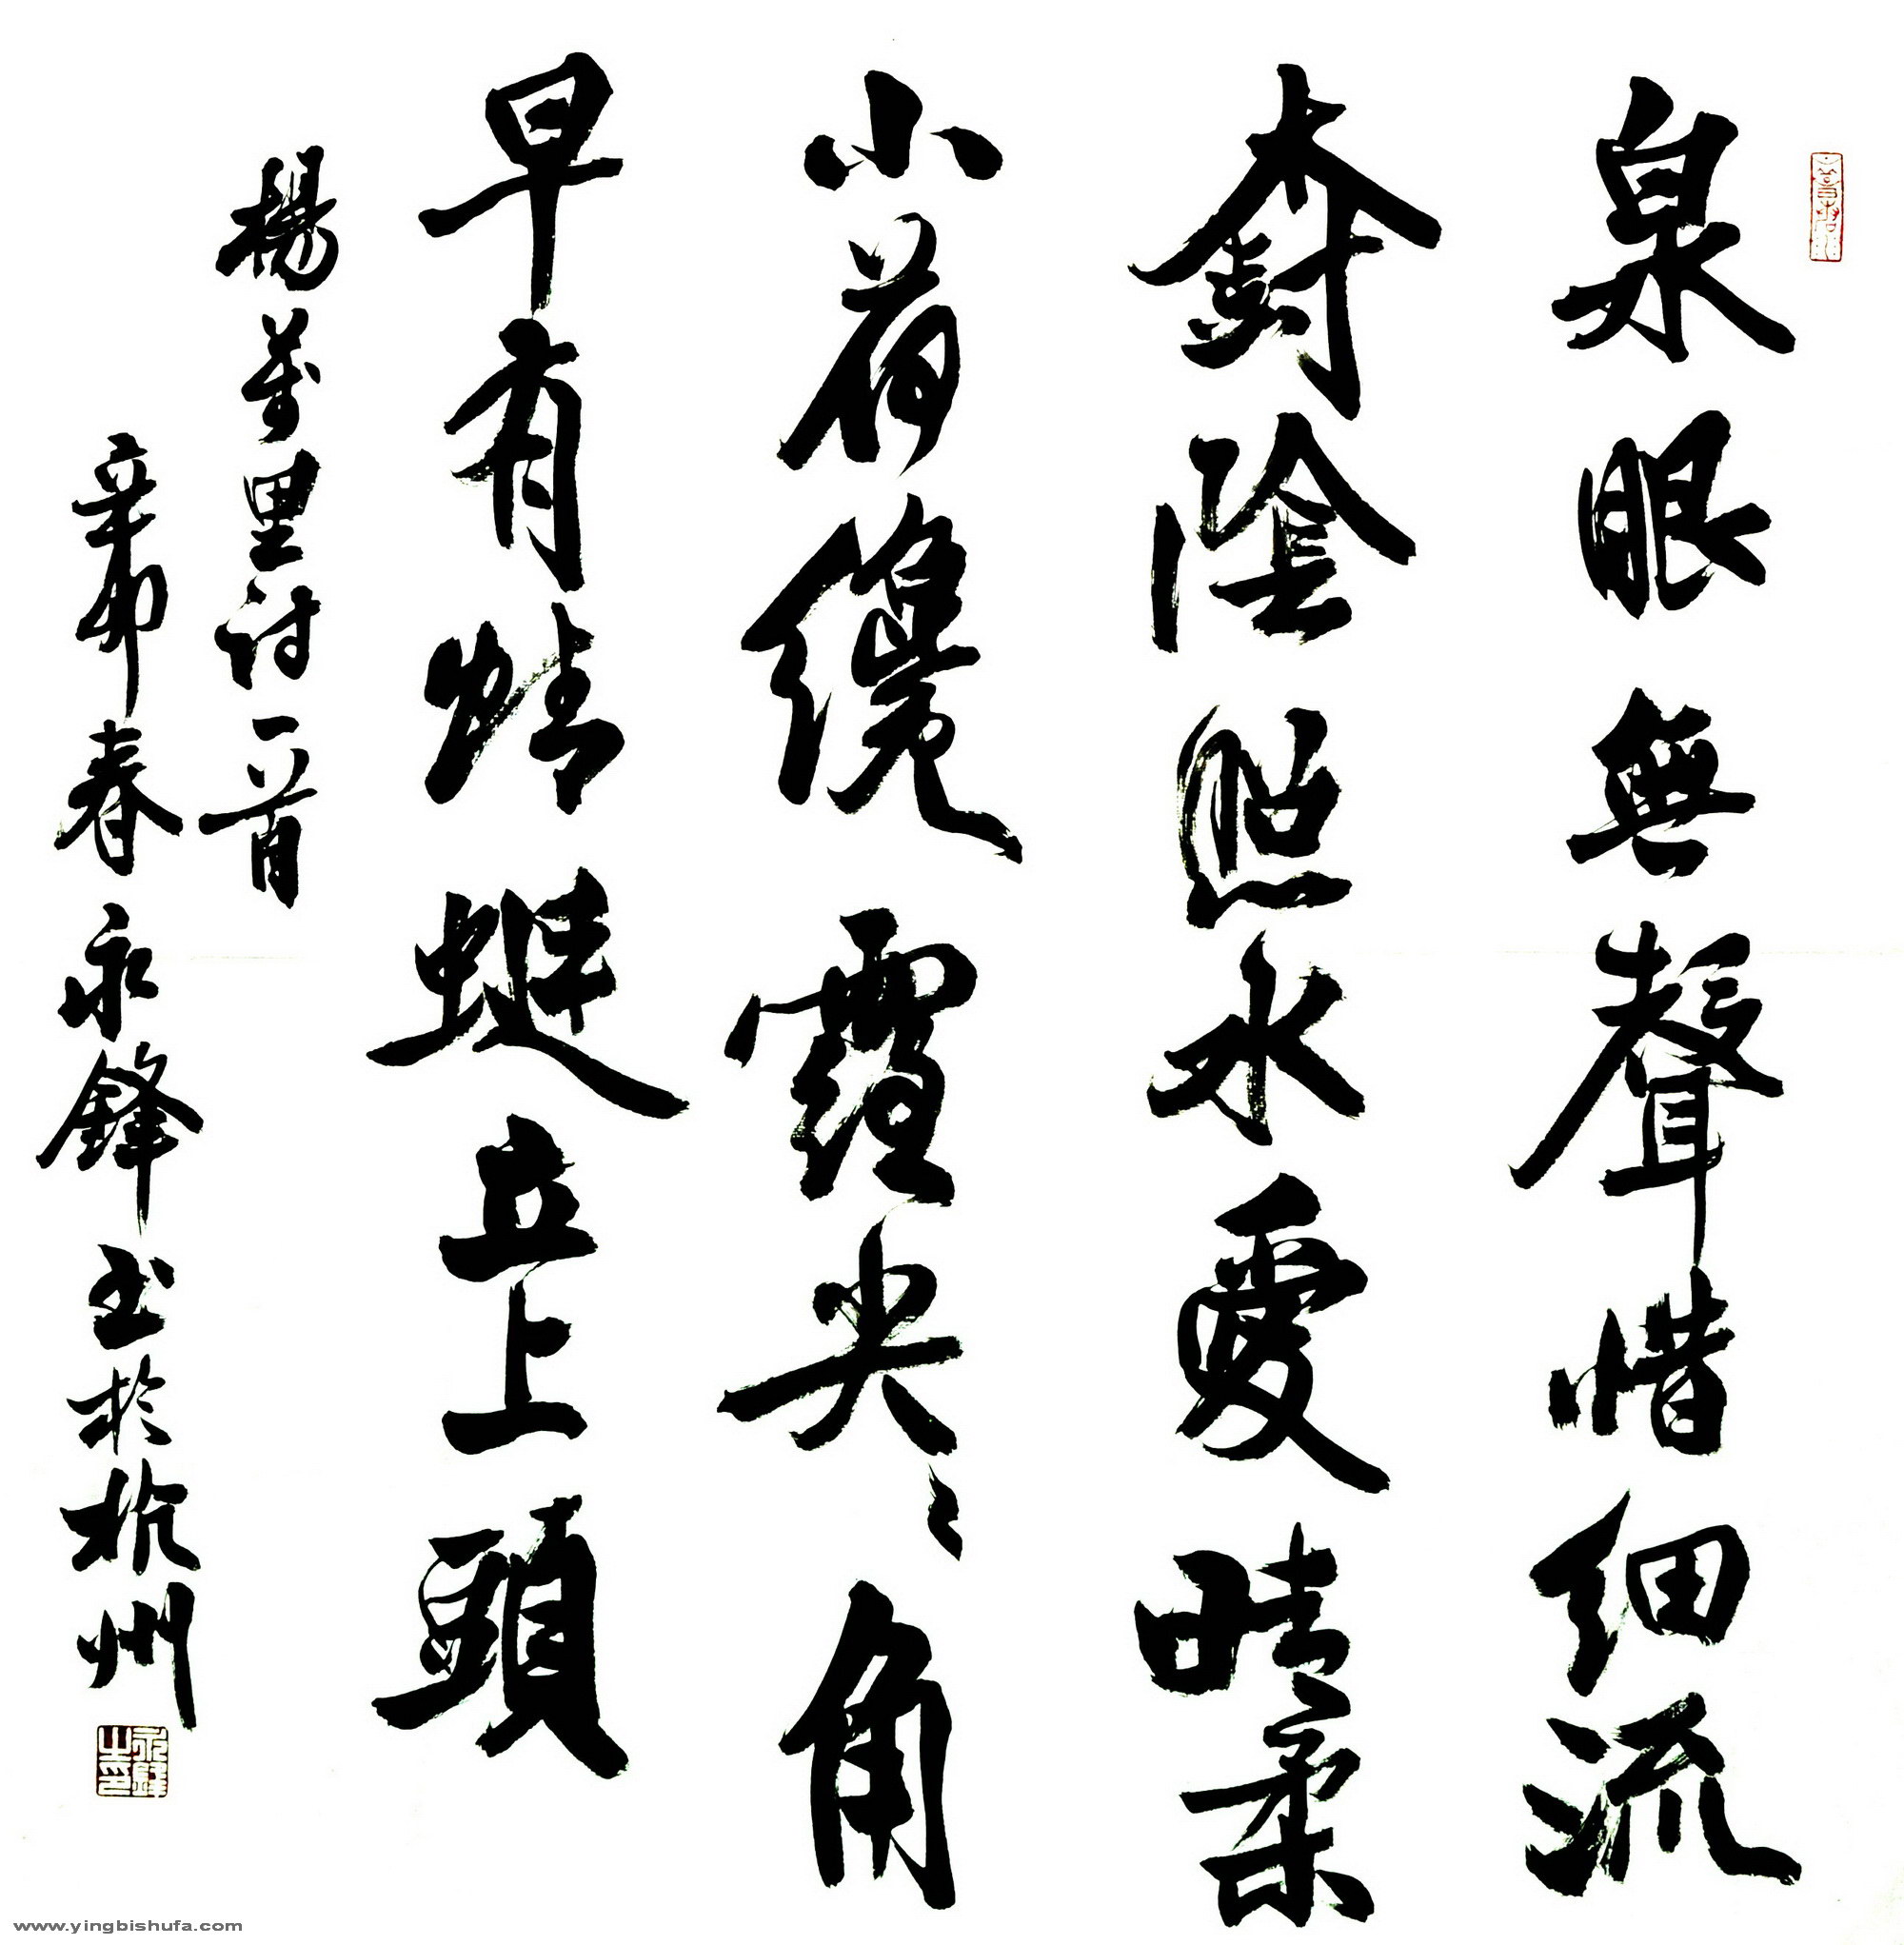 泉眼無聲惜細流
樹陰照水愛晴柔
小荷纔露尖〻角
早有蜻蜓立上頭
楊萬里詩一首
辛卯春永鋒書於杭州
永鋒之印
www.yingbishufa.com